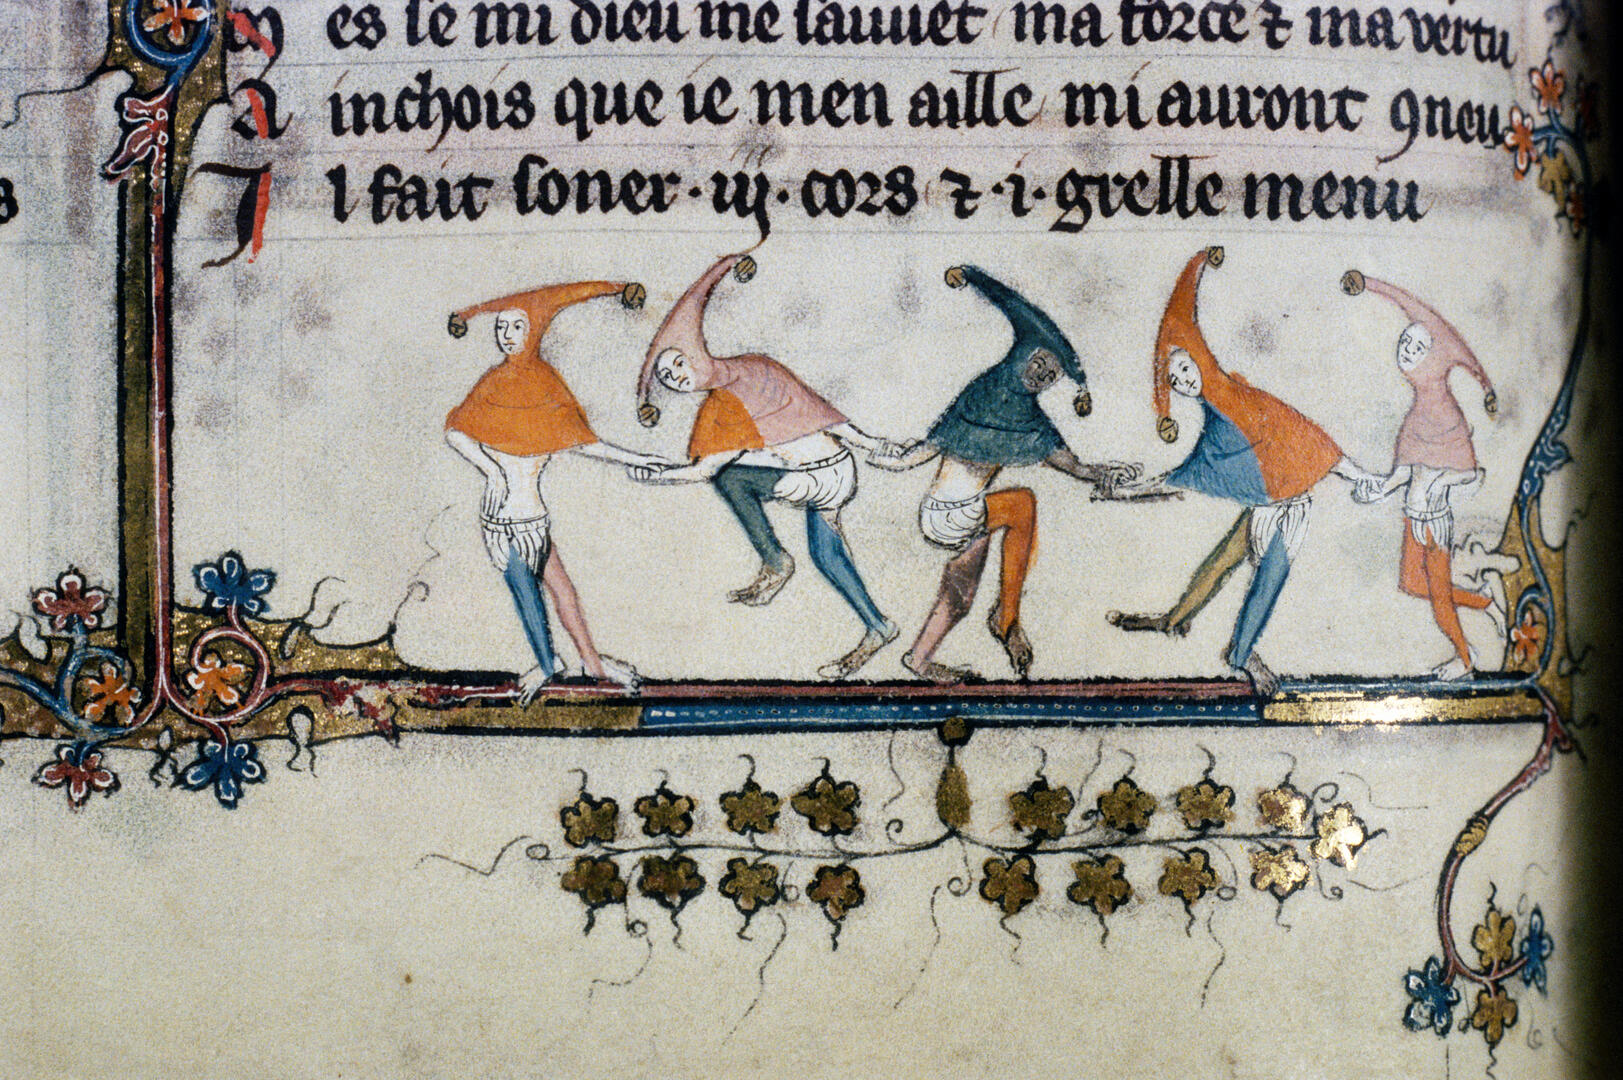 es se mi dieu me sauuet ma force ⁊ ma vertu
A inchois que ie men aille mi auront ꝯneu
I l fait soner · iij · cors ⁊ · i · grelle menu
s